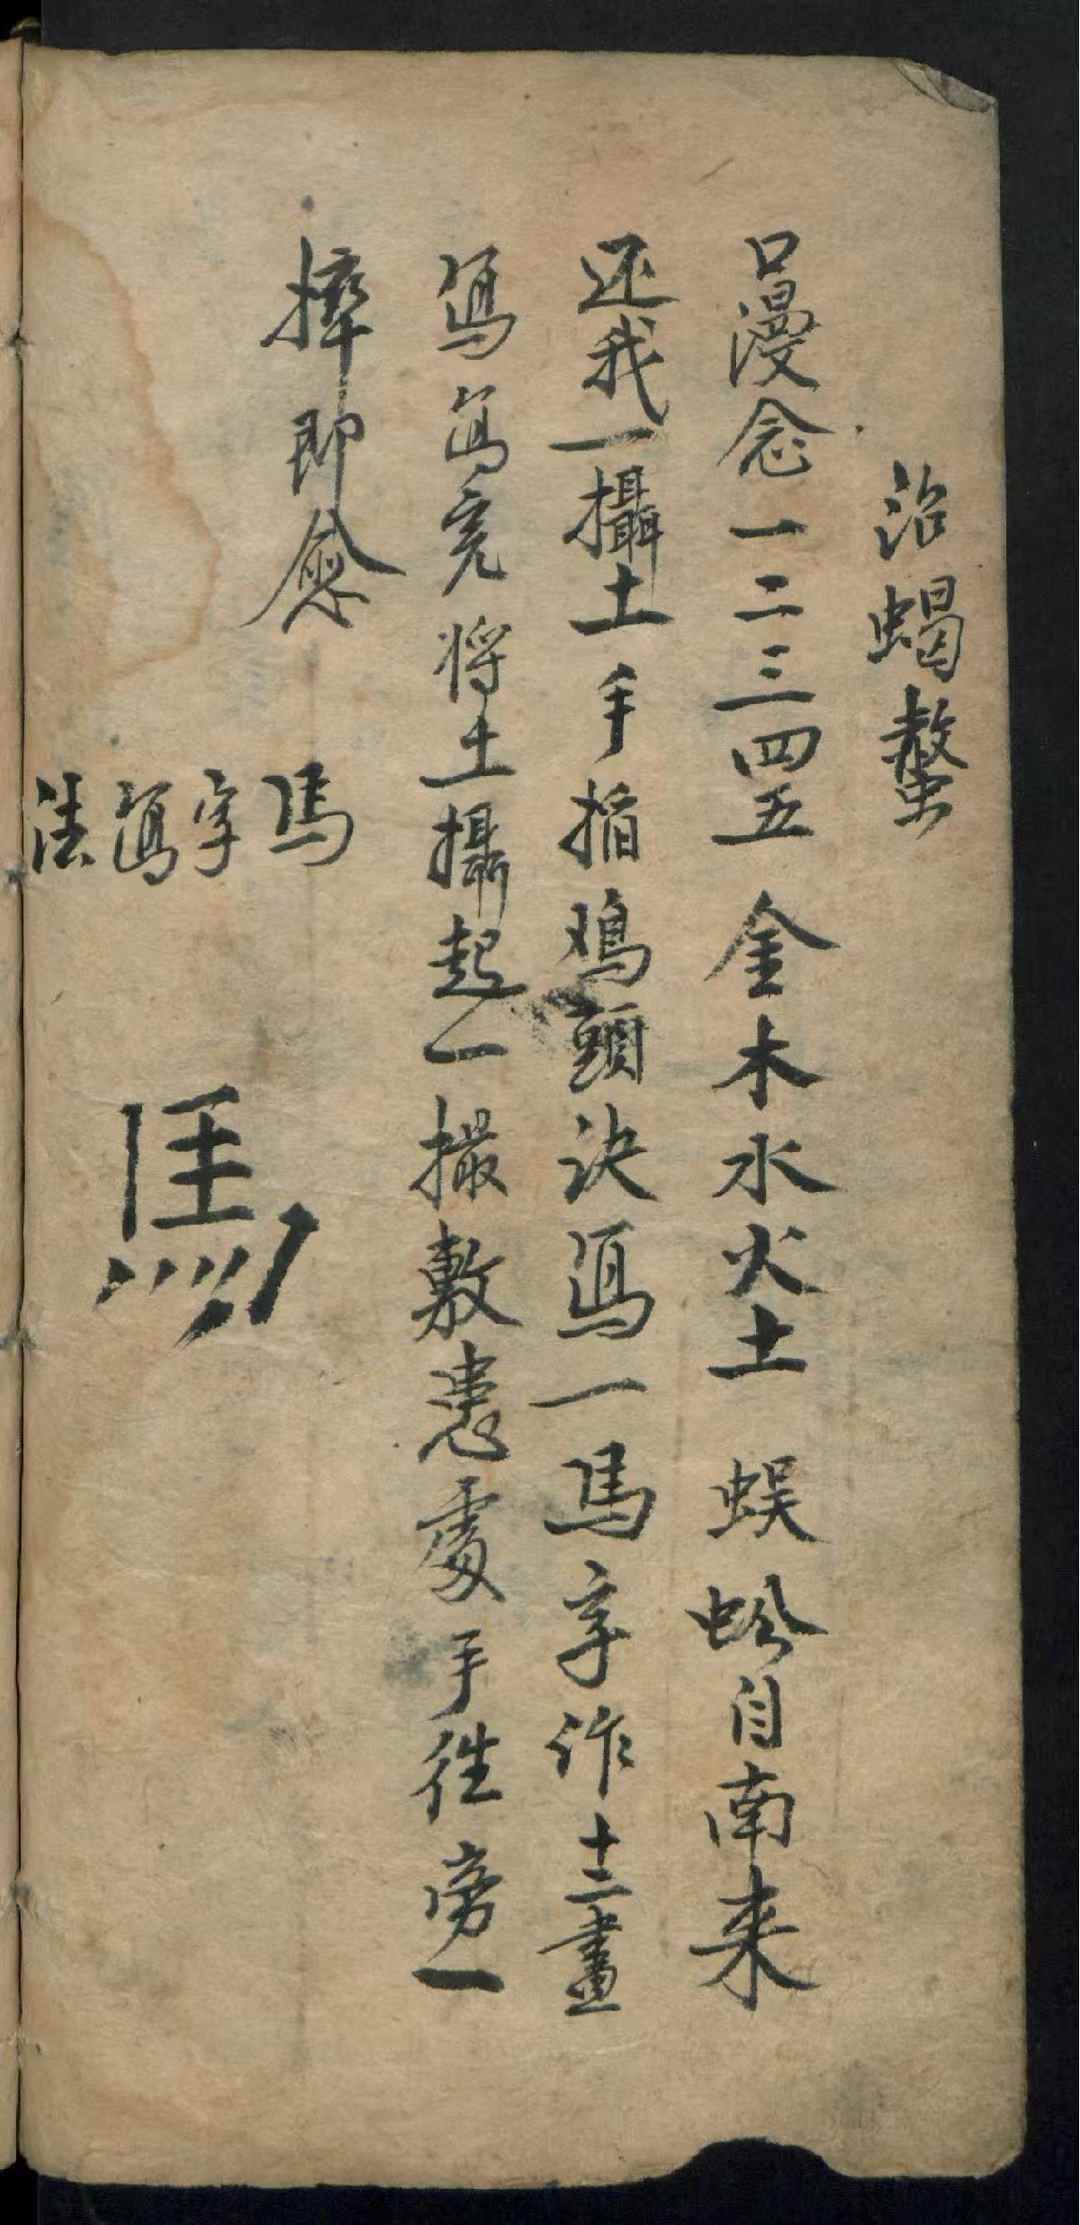 治蝎螫
口漫念一二三四五 金木水火土 蜈蚣自南来
还我一攝土 手掐鳮頭决寫一馬字作十二畫
寫寫完將土攝起一撮敷患處手往旁一
摔即愈
馬字寫法